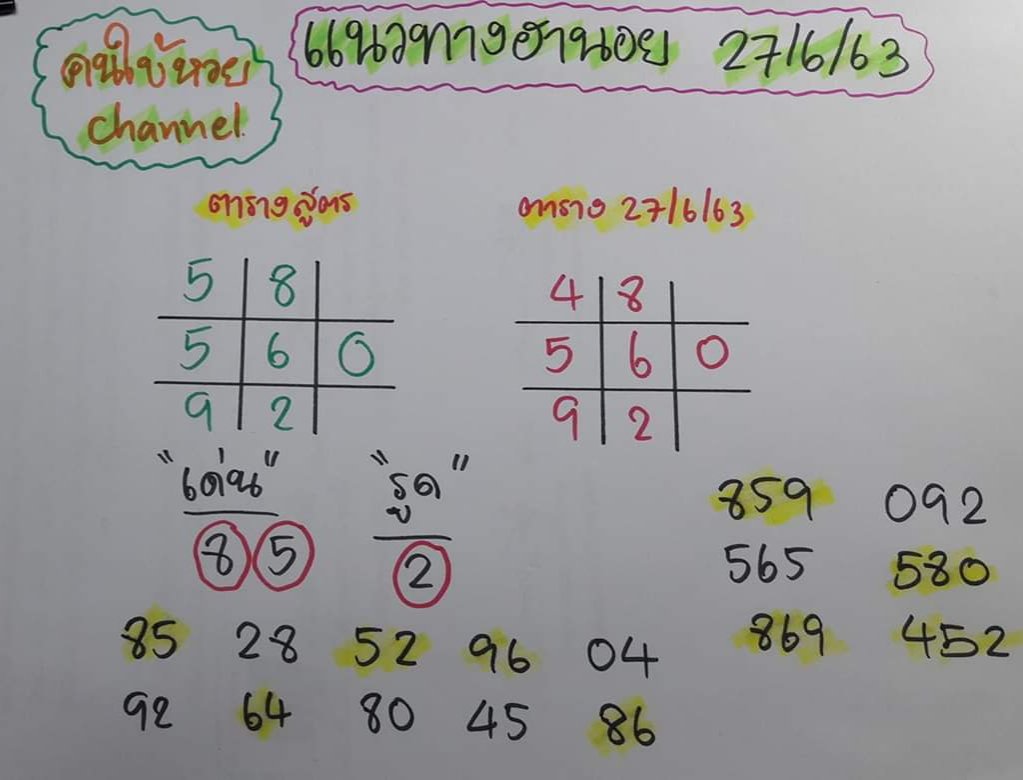 คนใบ้หวย
channel
แนวทางฮานอย 27/6/63
ตารางสูตร
5 8
5 6 0
9 2
ตาราง 27/6/63
4 8
5 6 0
9 2
"เด่น"
8 5
"รูด"
2
85 28 52 96 04
92 64 80 45 86
859 092
565 580
869 452